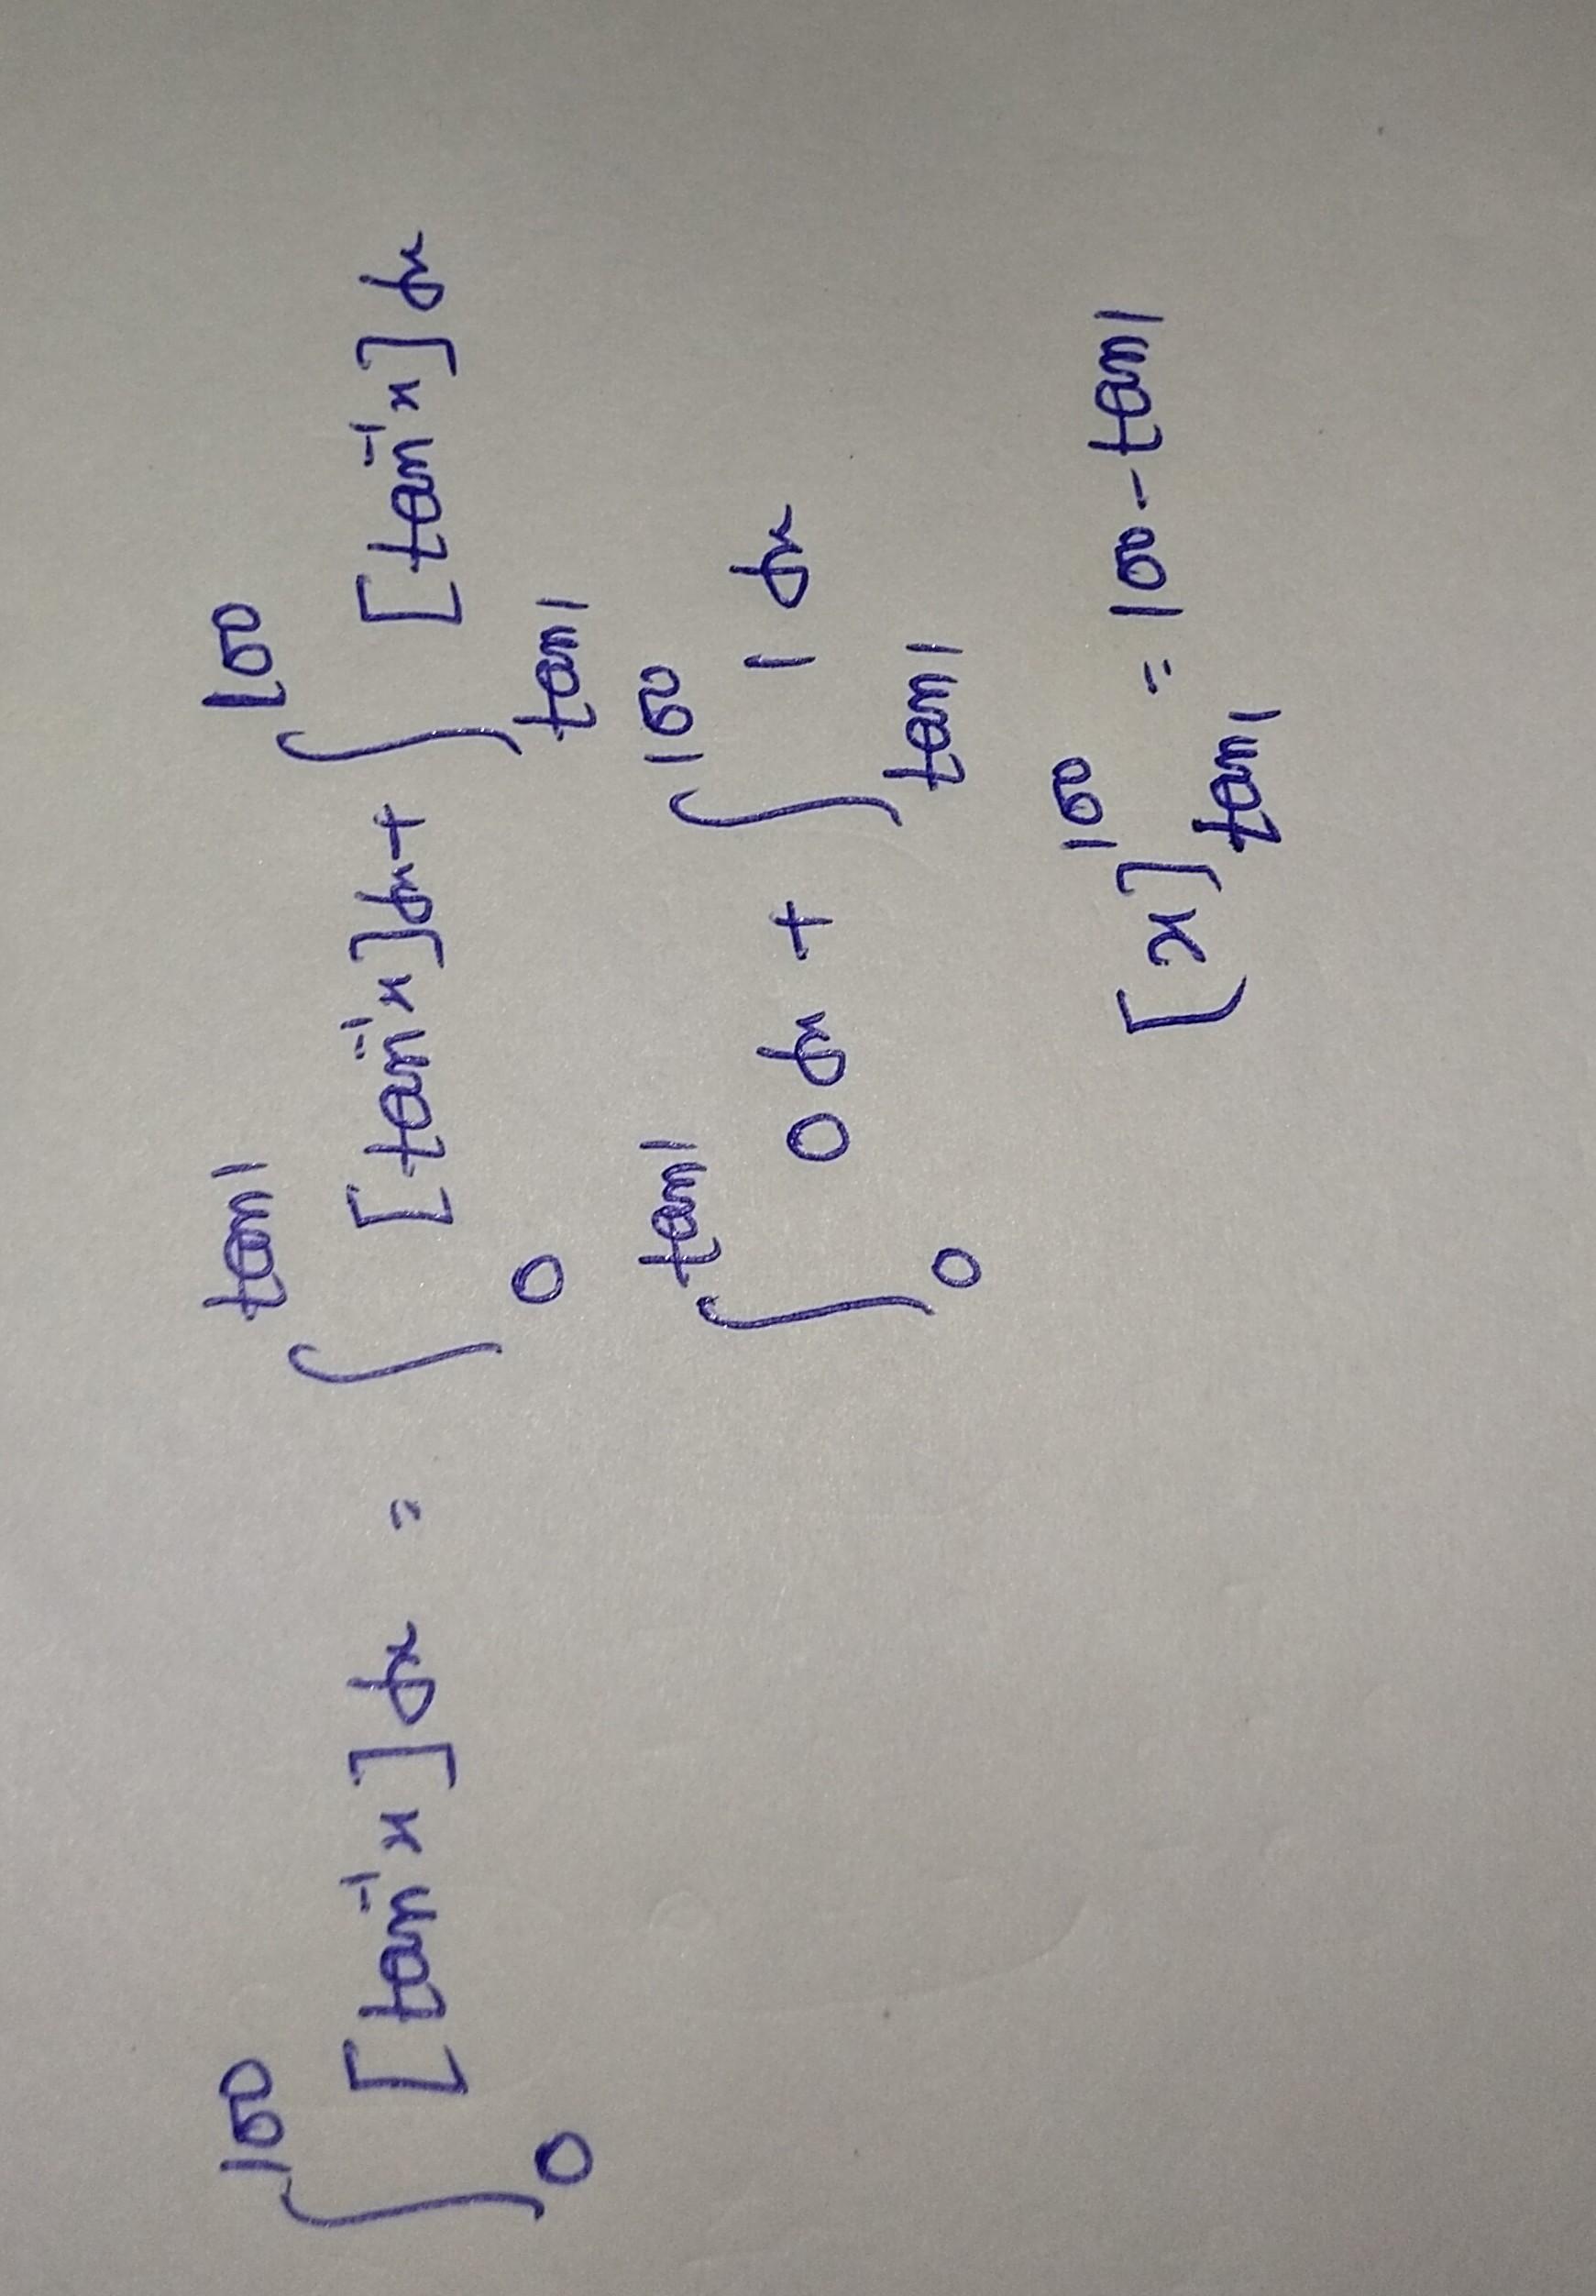 ∫₀¹⁰⁰ [tan⁻¹x] dx = ∫₀ᵗᵃⁿ¹ [tan⁻¹x] dx + ∫_{tan1}^{100} [tan⁻¹x] dx
∫₀ᵗᵃⁿ¹ 0 dx + ∫_{tan1}^{100} 1 dx
[x]_{tan1}^{100} = 100 - tan1